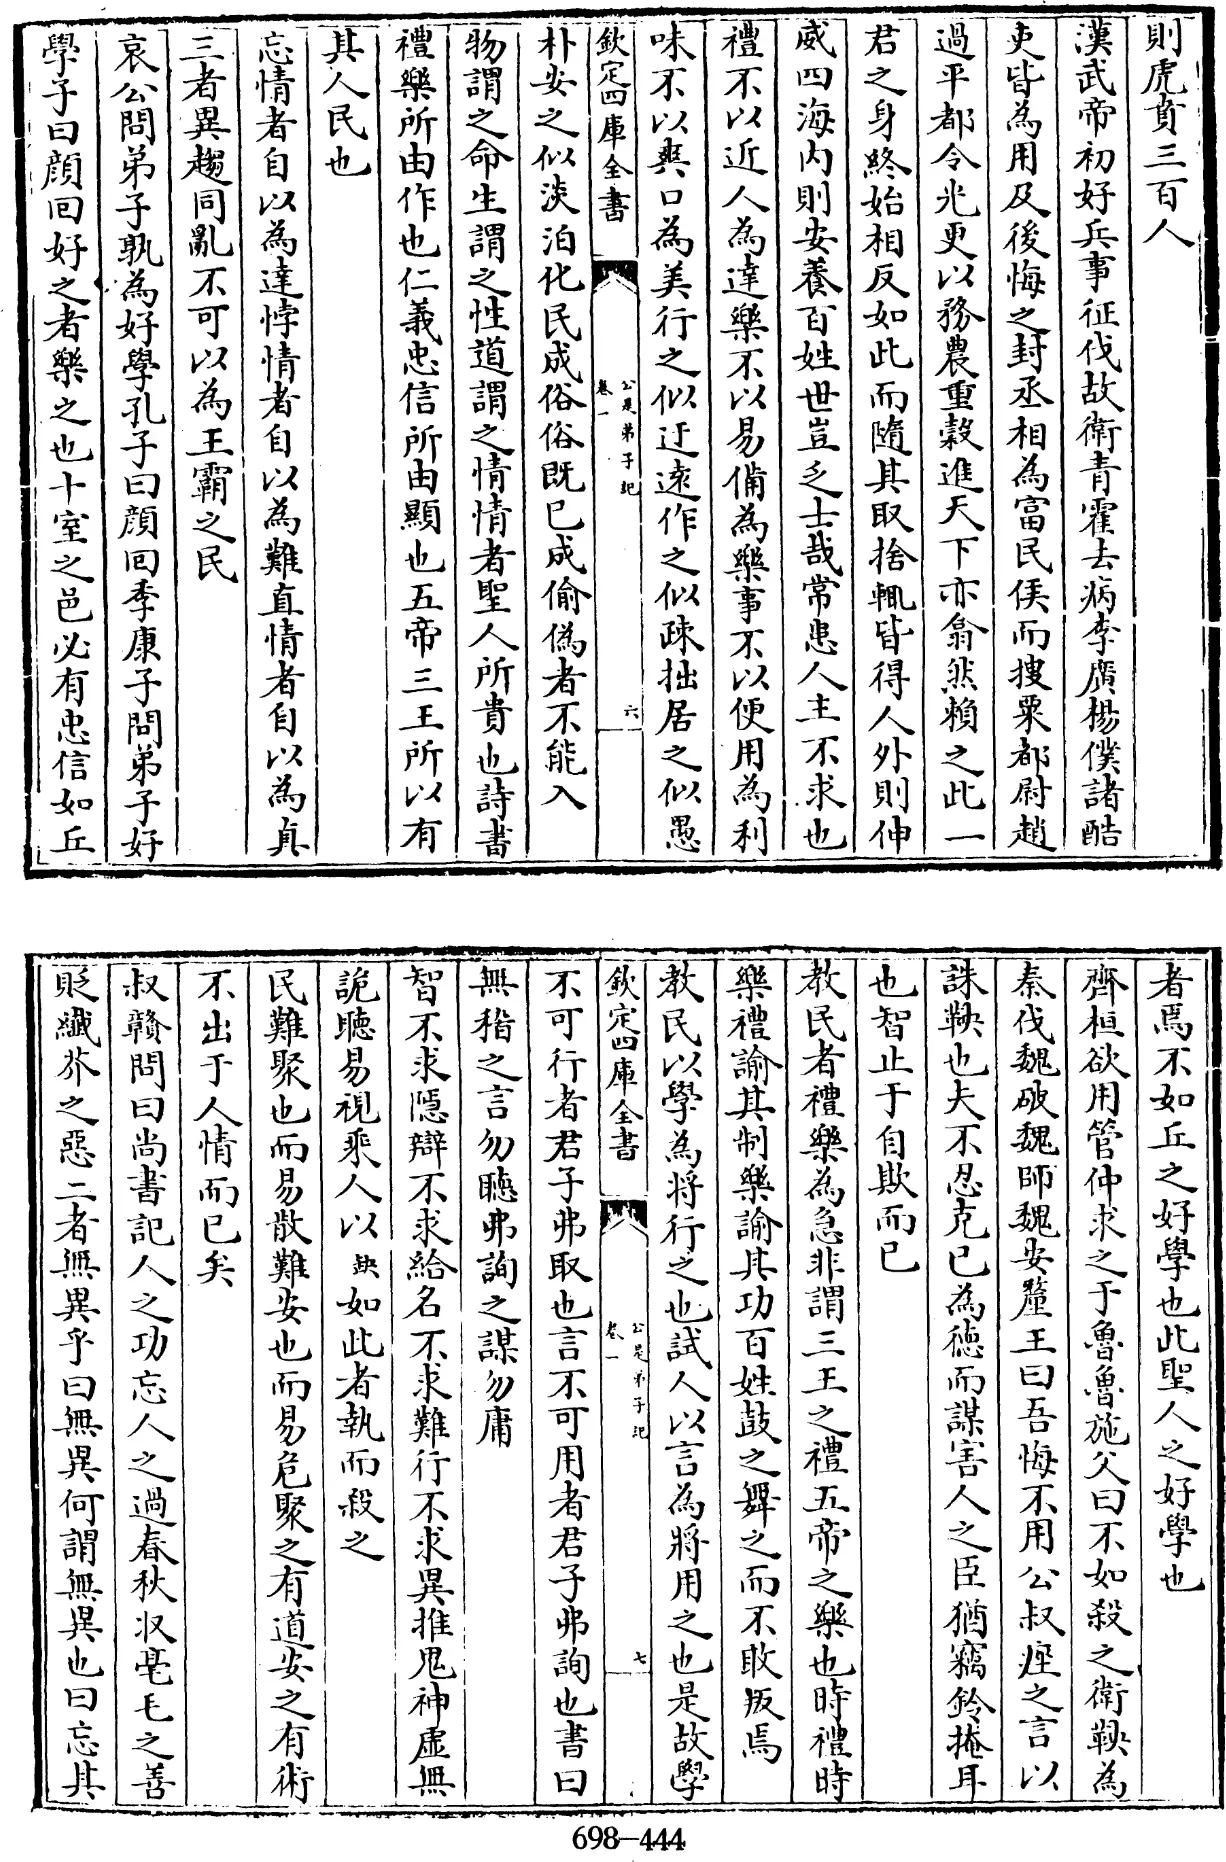 則虎賁三百人
漢武帝初好兵事征伐故衛青霍去病李廣楊僕諸酷
吏皆為用及後悔之封丞相為富民侯而搜粟都尉趙
過平都令光更以務農重穀進天下亦翕然賴之此一
君之身終始相反如此而隨其取捨輒皆得人外則伸
威四海内則安養百姓世豈乏士哉常患人主不求也
禮不以近人為達樂不以易備為樂事不以便用為利
味不以爽口為美行之似迂遠作之似疎拙居之似愚
欽定四庫全書
公是弟子記
卷一
六
朴安之似淡泊化民成俗俗既已成偷偽者不能入
物謂之命生謂之性道謂之情情者聖人所貴也詩書
禮樂所由作也仁義忠信所由顯也五帝三王所以有
其人民也
忘情者自以為達悖情者自以為難直情者自以為真
三者異趨同亂不可以為王霸之民
哀公問弟子孰為好學孔子曰顔回季康子問弟子好
學子曰顔回好之者樂之也十室之邑必有忠信如丘
者焉不如丘之好學也此聖人之好學也
齊桓欲用管仲求之于魯魯施父曰不如殺之衛鞅為
秦伐魏破魏師魏安釐王曰吾悔不用公叔痤之言以
誅鞅也夫不忍克已為德而謀害人之臣猶竊鈴掩耳
也智止于自欺而已
教民者禮樂為急非謂三王之禮五帝之樂也時禮時
樂禮諭其制樂諭其功百姓鼓之舞之而不敢叛焉
教民以學為將行之也試人以言為將用之也是故學
欽定四庫全書
公是弟子記
卷一
七
不可行者君子弗取也言不可用者君子弗詢也書曰
無稽之言勿聽弗詢之謀勿庸
智不求隠辯不求給名不求難行不求異推鬼神虛無
詭聽易視乘人以缺如此者執而殺之
民難聚也而易散難安也而易危聚之有道安之有術
不出于人情而已矣
叔贛問曰尚書記人之功忘人之過春秋収毫毛之善
貶纎芥之惡二者無異乎曰無異何謂無異也曰忘其
698-444